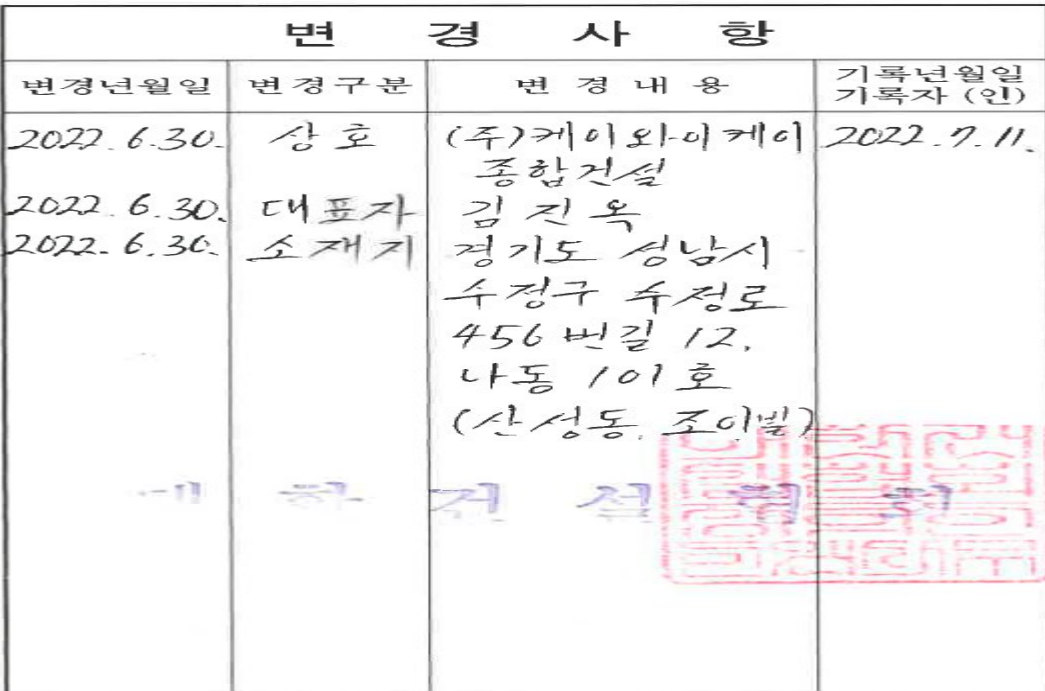 변 경 사 항
변경년월일 변경구분 변 경 내 용 기록년월일
기록자 (인)
2022. 6. 30. 상호 (주)케이와이케이 2022. 7. 11.
종합건설
2022. 6. 30. 대표자 김진옥
2022. 6. 30. 소재지 경기도 성남시
수정구 수정로
456번길 12,
나동 101호
(산성동, 조이빌)
대 한 건 설 협 회